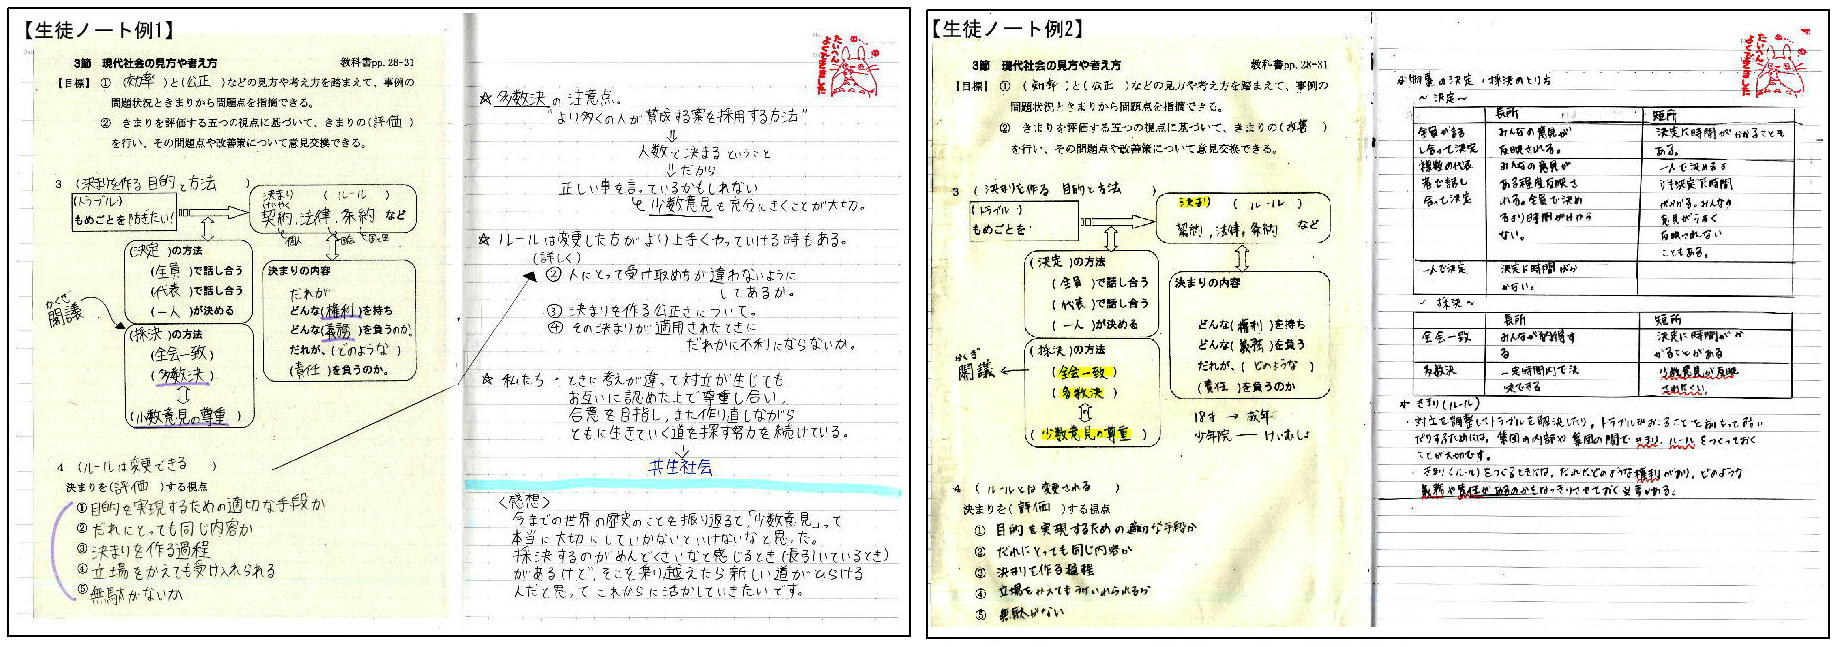 【生徒ノート例1】
3節 現代社会の見方や考え方 教科書pp. 28-31
【目標】 ① (効率)と(公正)などの見方や考え方を踏まえて、事例の
問題状況ときまりから問題点を指摘できる。
② きまりを評価する五つの視点に基づいて、きまりの(評価)
を行い、その問題点や改善策について意見交換できる。
3 (決まりを作る目的と方法)
(トラブル)
もめごとを防ぎたい!
決まり (ルール)
けいやく
契約、法律、条約 など
個人 国会 国と国
(決定)の方法
(全員)で話し合う
(代表)で話し合う
(一人)が決める
かくぎ
閣議
(採決)の方法
(全会一致)
(多数決)
(少数意見の尊重)
決まりの内容
だれが
どんな(権利)を持ち
どんな(義務)を負うのか。
だれが、(どのような)
(責任)を負うのか。
4 (ルールは変更できる)
決まりを(評価)する視点
①目的を実現するための適切な手段か
②だれにとっても同じ内容か
③決まりを作る過程
④立場をかえても受け入れられる
⑤無駄がないか
☆多数決の注意点。
"より多くの人が賛成する案を採用する方法"
人数で決まるということ
だから
正しい事を言っているかもしれない
少数意見も充分にきくことが大切。
☆ルールは変更した方がより上手くやっていける時もある。
(詳しく)
② 人にとって受け取めちが違わないように
してあるか。
③ 決まりを作る公正さについて。
④ その決まりが適用されたときに
だれかに不利にならないか。
☆ 私たち・ときに考えが違って対立が生じても
お互いに認めた上で尊重し合い、
合意を目指し、また作り直しながら
ともに生きていく道を探す努力を続けている。
共生社会
<感想>
今までの世界の歴史のことを振り返ると、「少数意見」って
本当に大切にしていかないといけないなと思った。
採決するのがめんどくさいなと感じるとき(長引いているとき)
があるけど、そこを乗り越えたら新しい道がひらける
んだと思って これからに活かしていきたいです。
【生徒ノート例2】
3節 現代社会の見方や考え方 教科書pp. 28-31
【目標】 ① (効率)と(公正)などの見方や考え方を踏まえて、事例の
問題状況ときまりから問題点を指摘できる。
② きまりを評価する五つの視点に基づいて、きまりの(改善)
を行い、その問題点や改善策について意見交換できる。
3 (決まりを作る 目的と方法)
(トラブル)
もめごとを
決まり (ルール)
契約,法律,条約 など
(決定)の方法
(全員)で話し合う
(代表)で話し合う
(一人)が決める
かくぎ
閣議
(採決)の方法
(全会一致)
(多数決)
(少数意見の尊重)
決まりの内容
どんな(権利)を持ち
どんな(義務)を負う
だれが、(どのような)
(責任)を負うのか
18才 → 成年
少年院 ― けいむしょ
4 (ルールとは変更される)
決まりを(評価)する視点
① 目的を実現するための適切な手段か
② だれにとっても同じ内容か
③ 決まりを作る過程
④ 立場をかえてもうけいれられるか
⑤ 無駄がない
☆物事の決定・採決のとり方
～決定～
長所 短所
全員が話し合って決定 みんなの意見が反映される。 決定に時間がかかることもある。
複数の代表者で話し合って決定 みんなの意見がある程度反映される。全員で決めるより時間がかからない。 一人で決めるよりも決定に時間がかかる。みんなの意見がうまく反映されないこともある。
一人で決定 決定に時間がかからない。
～採決～
長所 短所
全会一致 みんなが納得する 決定に時間がかかることがある
多数決 一定時間内で決定できる 少数意見が反映されにくい。
☆きまり(ルール)
・対立を調整してトラブルを解決したり、トラブルがおこることを前もって防い
だりするためには、集団の内部や集団の間できまり、ルールをつくっておく
ことが大切です。
・きまり(ルール)をつくるときには、だれにどのような権利があり、どのような
義務や責任があるのかをはっきりさせておく必要がある。